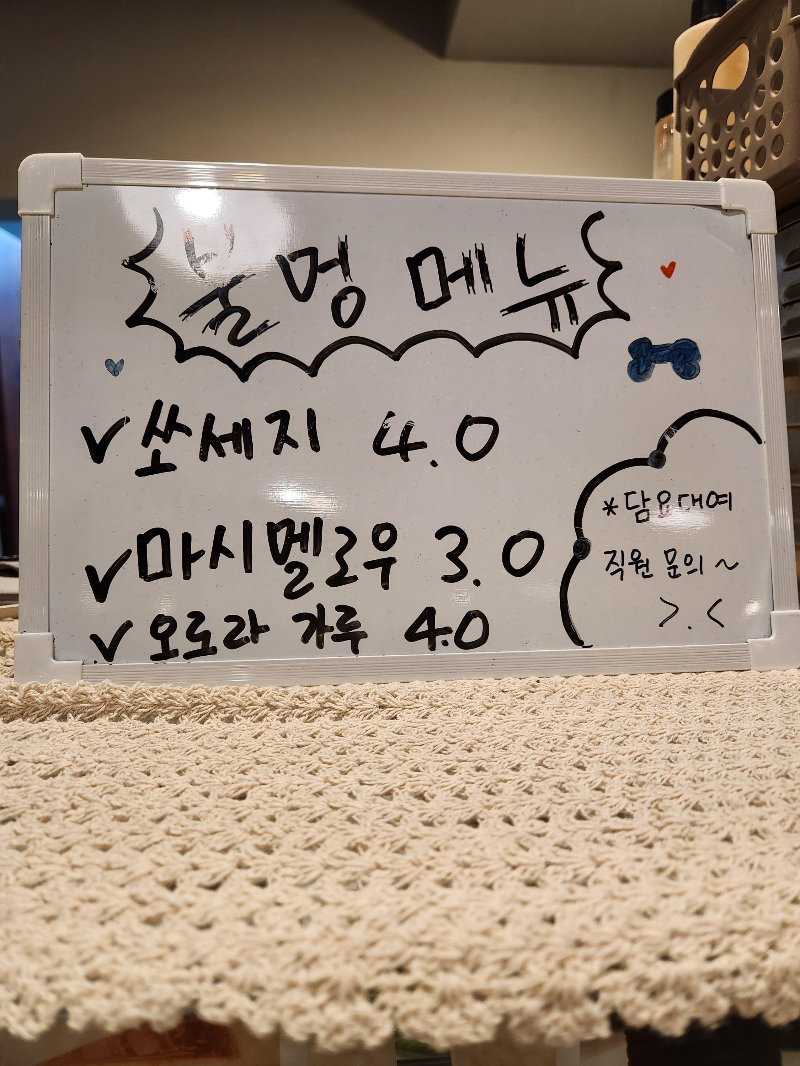 불멍 메뉴
✓쏘세지 4.0
✓마시멜로우 3.0
✓오로라 가루 4.0
*담요대여
직원 문의~
>.<